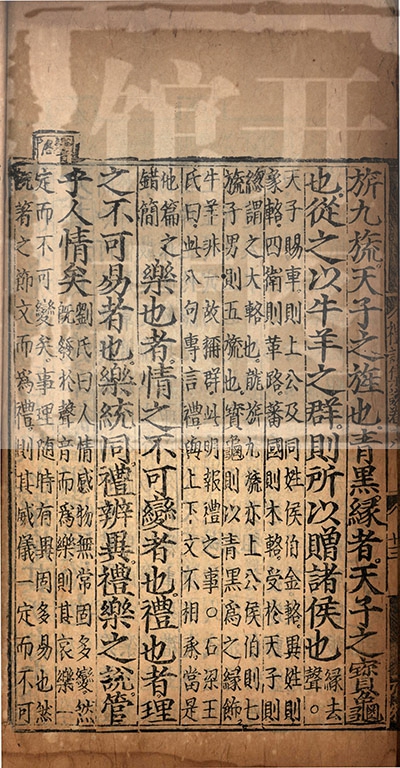 旂九旒。天子之旌也。青黑緣者。天子之寳龜
也。從之以牛羊之群。則所以贈諸侯也 緣去聲。
天子賜車則上公及同姓侯伯金輅異姓則
象輅四衛則革路蕃國則木輅受於天子則
緫謂之大輅也龍旂九旒亦上公侯伯則七
旒子男則五旒也寳龜則以青黑爲之緣飾
牛羊非一故稱群此明報禮之事○石梁王
氏曰此八句專言禮與上下文不相承當是
他篇之
錯簡
樂也者。情之不可變者也。禮也者。理
之不可易者也。樂統同。禮辨異。禮樂之説。管
乎人情矣
劉氏曰人情感物無常固多變然
既發於聲音而爲樂則其哀樂一
定而不可變矣事理隨時有異固多易也然
既著之節文而爲禮則其威儀一定而不可
开
馆